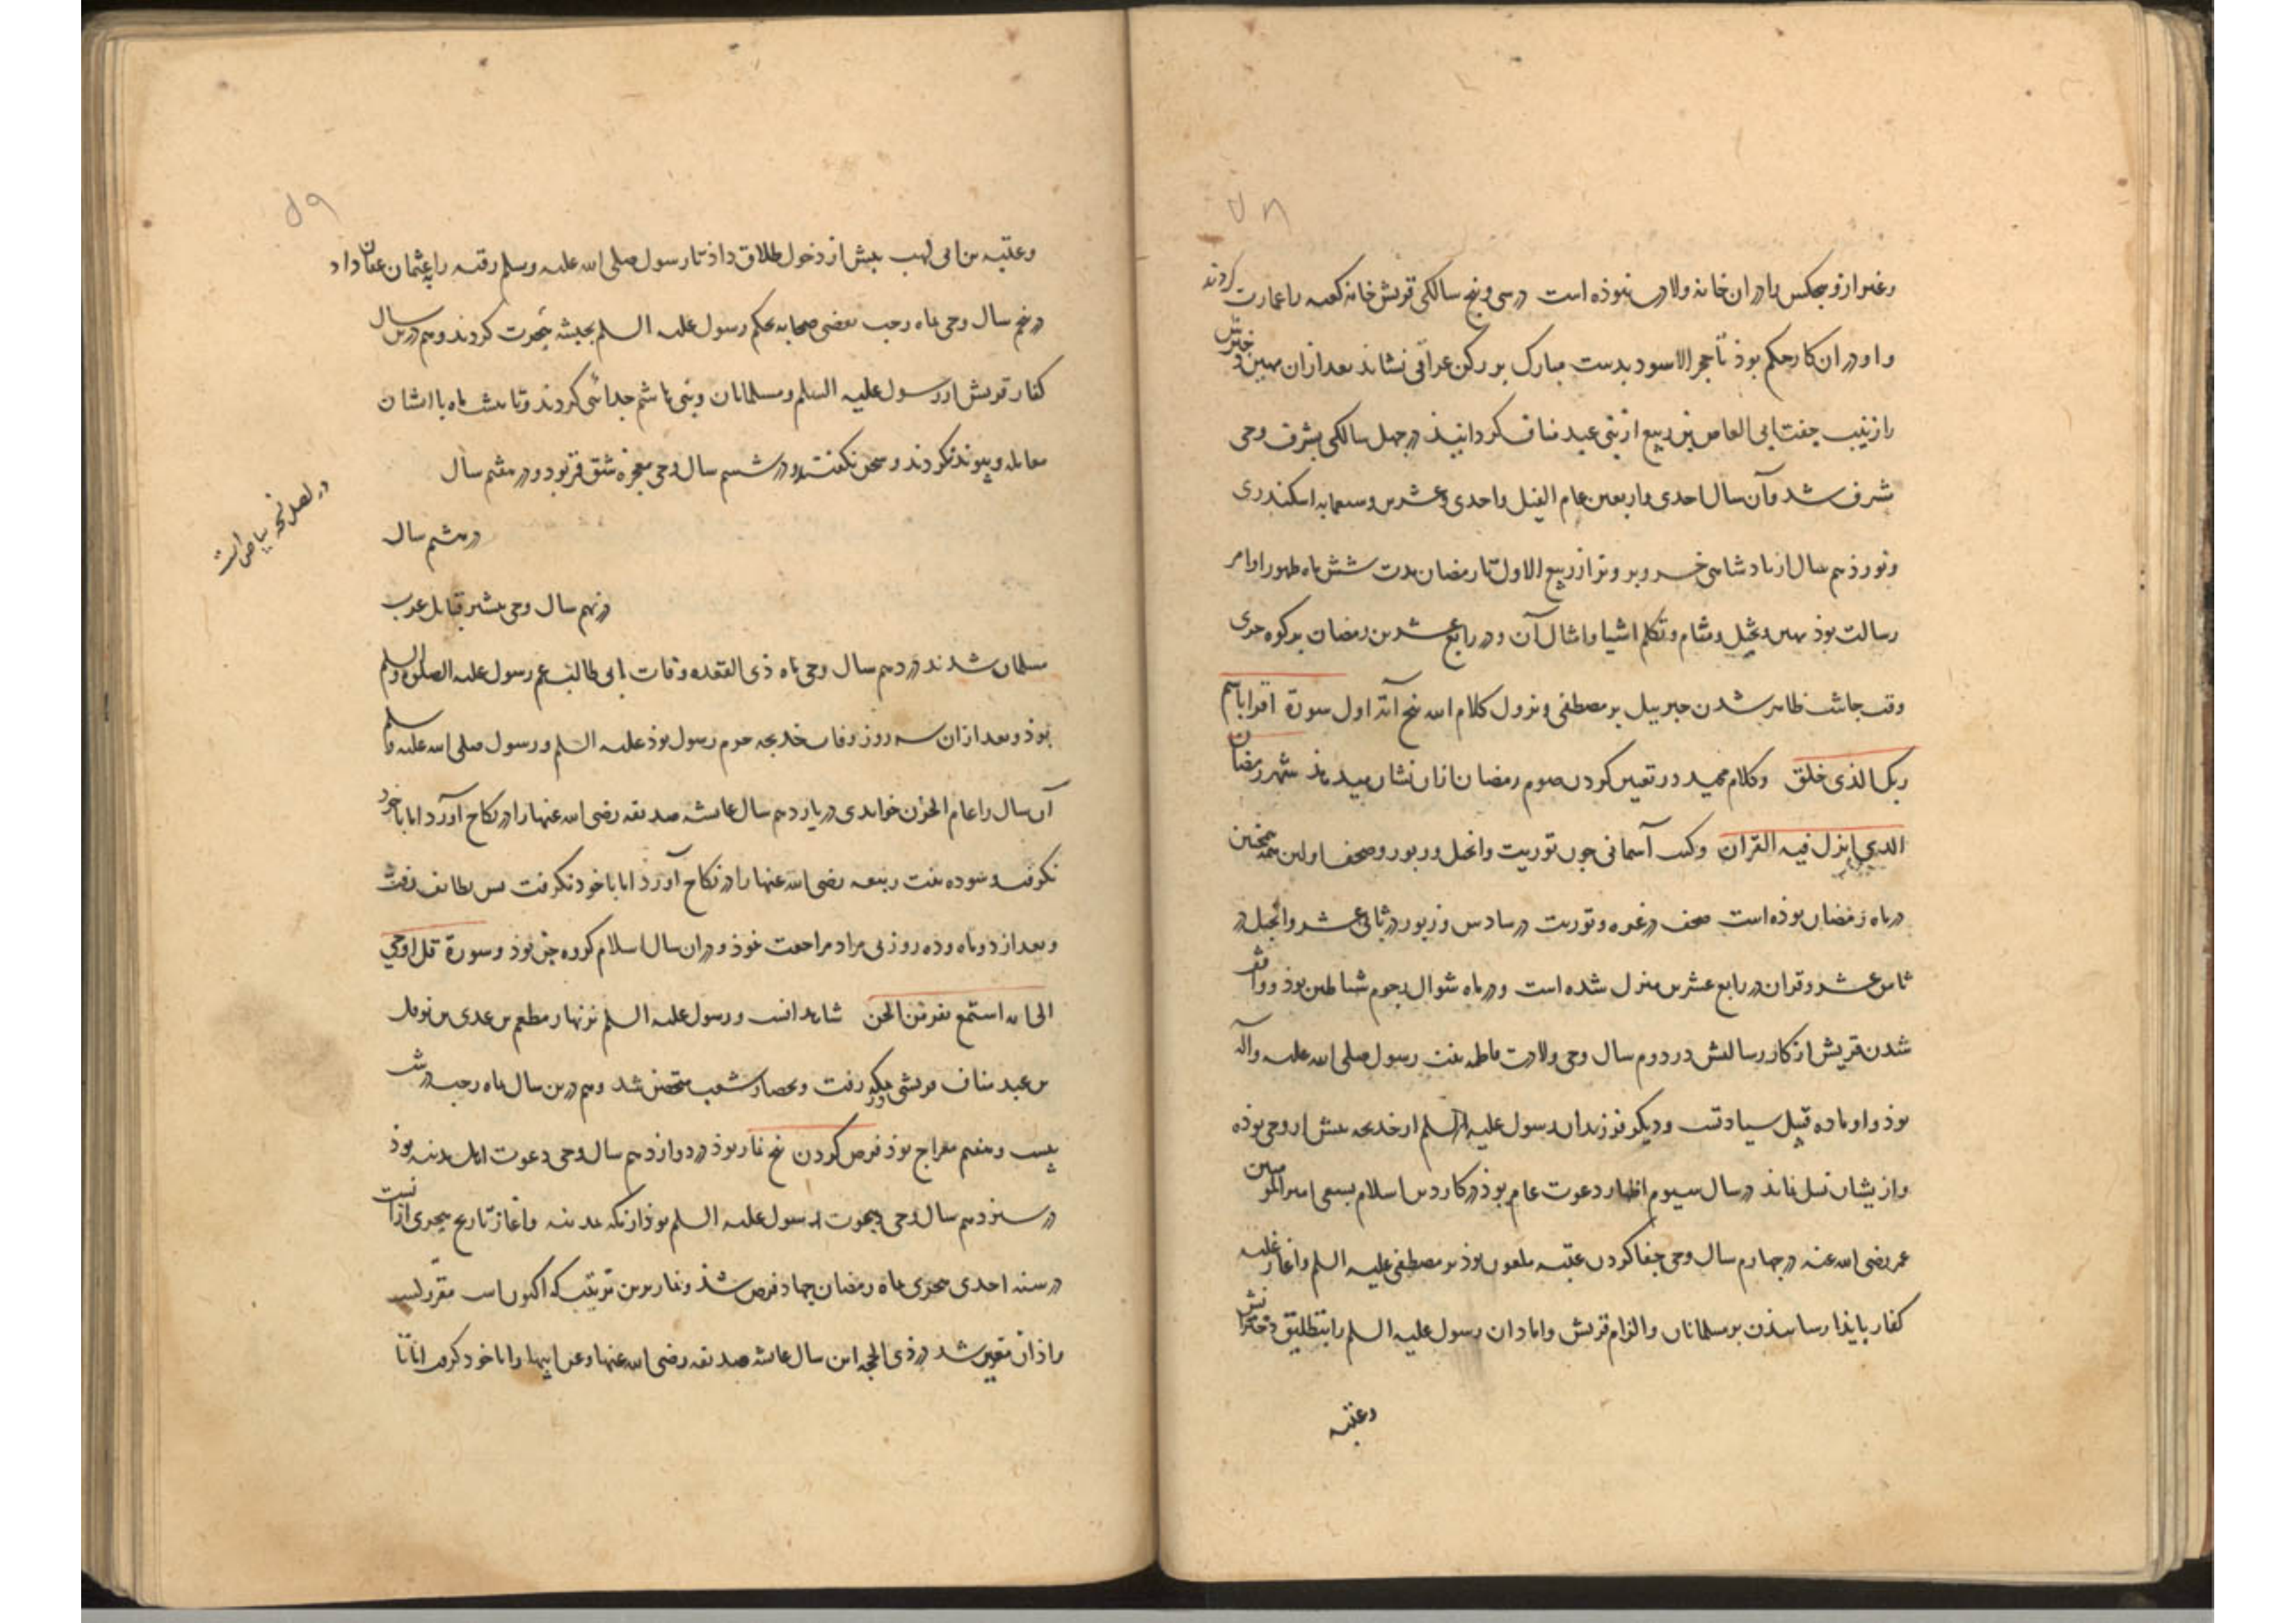 ۵۸
وغیر ازو هیچکس را دران خانه ولادت نبوذه است در سی و پنج سالکی قریش خانه کعبه را عمارت کردند
و او دران کار حکم بوذ تا حجر الاسود بدست مبارک بر رکن عراقی نشاند بعد ازان مهین دخترش
را زینب جفت ابی العاص بن ربیع از بنی عبد مناف کردانیذ در چهل سالکی بشرف وحی
مشرف شد و آن سال احدی و اربعین عام الفیل و احدی و عشرین و تسعمایه اسکندری
و نوزدهم سال از پادشاهی خسرو پرویز از ربیع الاول تا رمضان مدت شش ماه ظهور اوامر
رسالت بوذ بهین و تخیل و منام و تکلم اشیا و امثال آن و در رابع عشرین رمضان بر کوه حری
وقت جاشت ظاهر شدن جبرییل بر مصطفی و نزول کلام الله پنج آیة اول سورة اقرا باسم
ربک الذی خلق وکلام مجید در تعیین کردن صوم رمضان ازان نشان میدهذ شهر رمضان
الذی انزل فیه القران و کتب آسمانی چون توریت و انجیل و زبور و صحف اولین همه همچنین
در ماه رمضان بوذه است صحف در غره و توریت در سادس و زبور در ثانی عشر و انجیل در
ثامن عشر و قران در رابع عشرین منزل شده است و در ماه شوال رجوم شیاطین بوذ و واقف
شدن قریش از کار رسالتش در دوم سال وحی ولادت فاطمه بنت رسول صلی الله علیه وآله
بوذ و او ماده قبیل سیادتست و دیکر فرزندان رسول علیه السلم از خدیجه پیش از وحی بوذه
و ازیشان نسل نماند در سال سیوم اظهار دعوت عام بوذ در کار دین اسلام بسعی امیر المومنین
عمر رضی الله عنه در چهارم سال وحی جفا کردن عتبه ملعون بوذ بر مصطفی علیه السلم و آغاز غلبه
کفار بایذا رسانیدن بر مسلمانان و الزام قریش دامادان رسول علیه السلم را بتطلیق دخترانش
وعتبه
۵۹
وعتبه بن ابی لهب پیش از دخول طلاق داذ تا رسول صلی الله علیه وسلم رقیه را بعثمان عفان داد
در پنجم سال وحی ماه رجب بعضی صحابه بحکم رسول علیه السلم بحبشه هجرت کردند و هم درین سال
کفار قریش از رسول علیه السلم و مسلمانان و بنی هاشم جدائی کردند و تا شش ماه با ایشان
معامله و پیوند نکردند و سخن نکفتند و در ششم سال وحی معجزه شق قمر بود و در هفتم سال
در هشتم سال
در اصل نسخه بیاض است
در نهم سال وحی بیشتر قبایل عرب
مسلمان شدند در دهم سال وحی ماه ذی القعده وفات ابی طالب عم رسول علیه الصلوة والسلم
بوذ و بعد ازان سه روز وفات خدیجه حرم رسول بوذ علیه السلم و رسول صلی الله علیه وسلم
آن سال را عام الحزن خواندی در یازدهم سال عایشه صدیقه رضی الله عنها را در نکاح آورد اما با خود
نکرفت و سوده بنت ربیعه رضی الله عنها را در نکاح آورد اما با خود نکرفت پس بطایف رفت
و بعد از دو ماه و ده روز بی مراد مراجعت نموذ و دران سال اسلام کروه جن بوذ و سورة قل اوحی
الی انه استمع نفر من الجن شاهد آنست و رسول علیه السلم بزنهار مطعم بن عدی بن نوفل
بن عبد مناف قریشی در مکه رفت و بحصار شعب متحصن شد و هم درین سال ماه رجب در شب
بیست و هفتم معراج بوذ فرض کردن پنج نماز بوذ در دوازدهم سال وحی دعوت اهل مدینه بوذ
در سیزدهم سال وحی هجرت رسول علیه السلم بوذ از مکه بمدینه و آغاز تاریخ هجری ازانست
در سنه احدی هجری ماه رمضان جهاد فرض شذ و نماز برین ترتیب که اکنون است مقرر کشت
و اذان تعیین شد در ذی الحجه این سال عایشه صدیقه رضی الله عنها و عن ابیها را با خود کرفت اما تا